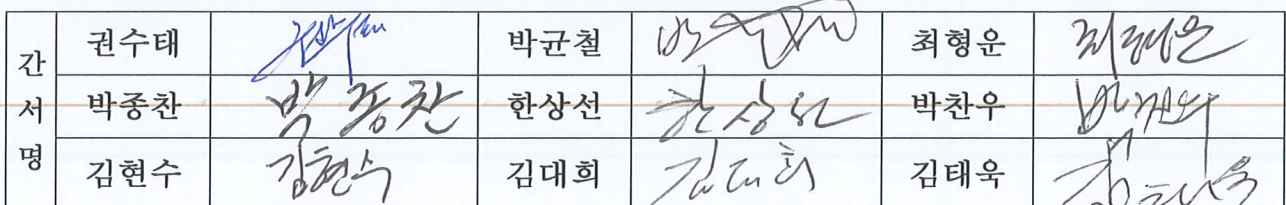 간 서 명
권수태 박균철 최형운 최형운
박종찬 박종찬 한상선 한상선 박찬우 박찬우
김현수 김현수 김대희 김대희 김태욱 김태욱